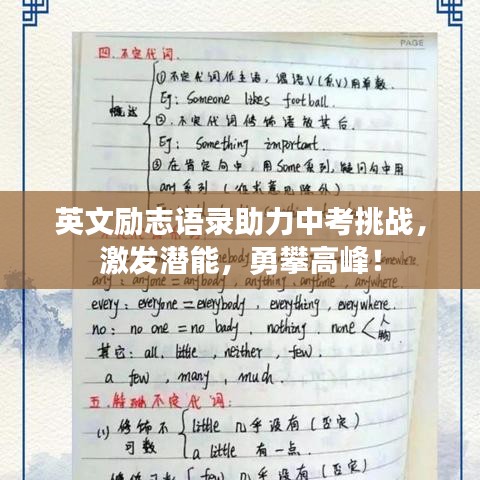 PAGE
四. 不定代词.
概述
① 不定代词作主语, 谓语V (系V) 用单数.
Eg: Someone likes football.
②. 不定代词修饰语放其后.
Eg: Something important.
③ 在肯定句中, 用Some系列, 疑问句中用
any 系列
英文励志语录助力中考挑战，
激发潜能，勇攀高峰！
any: anyone = anybody, anything, anytime, anywhere.
every: everyone = everybody, everything, everywhere.
no: no one = no body, nothing, none < 人 物
其它: all, little, neither, few.
a few, many, much.
五. 特殊不定代词:
(1) 修饰不可数
little 几乎没有 (否定)
a little 有一点.
few 几乎没有 (否定)